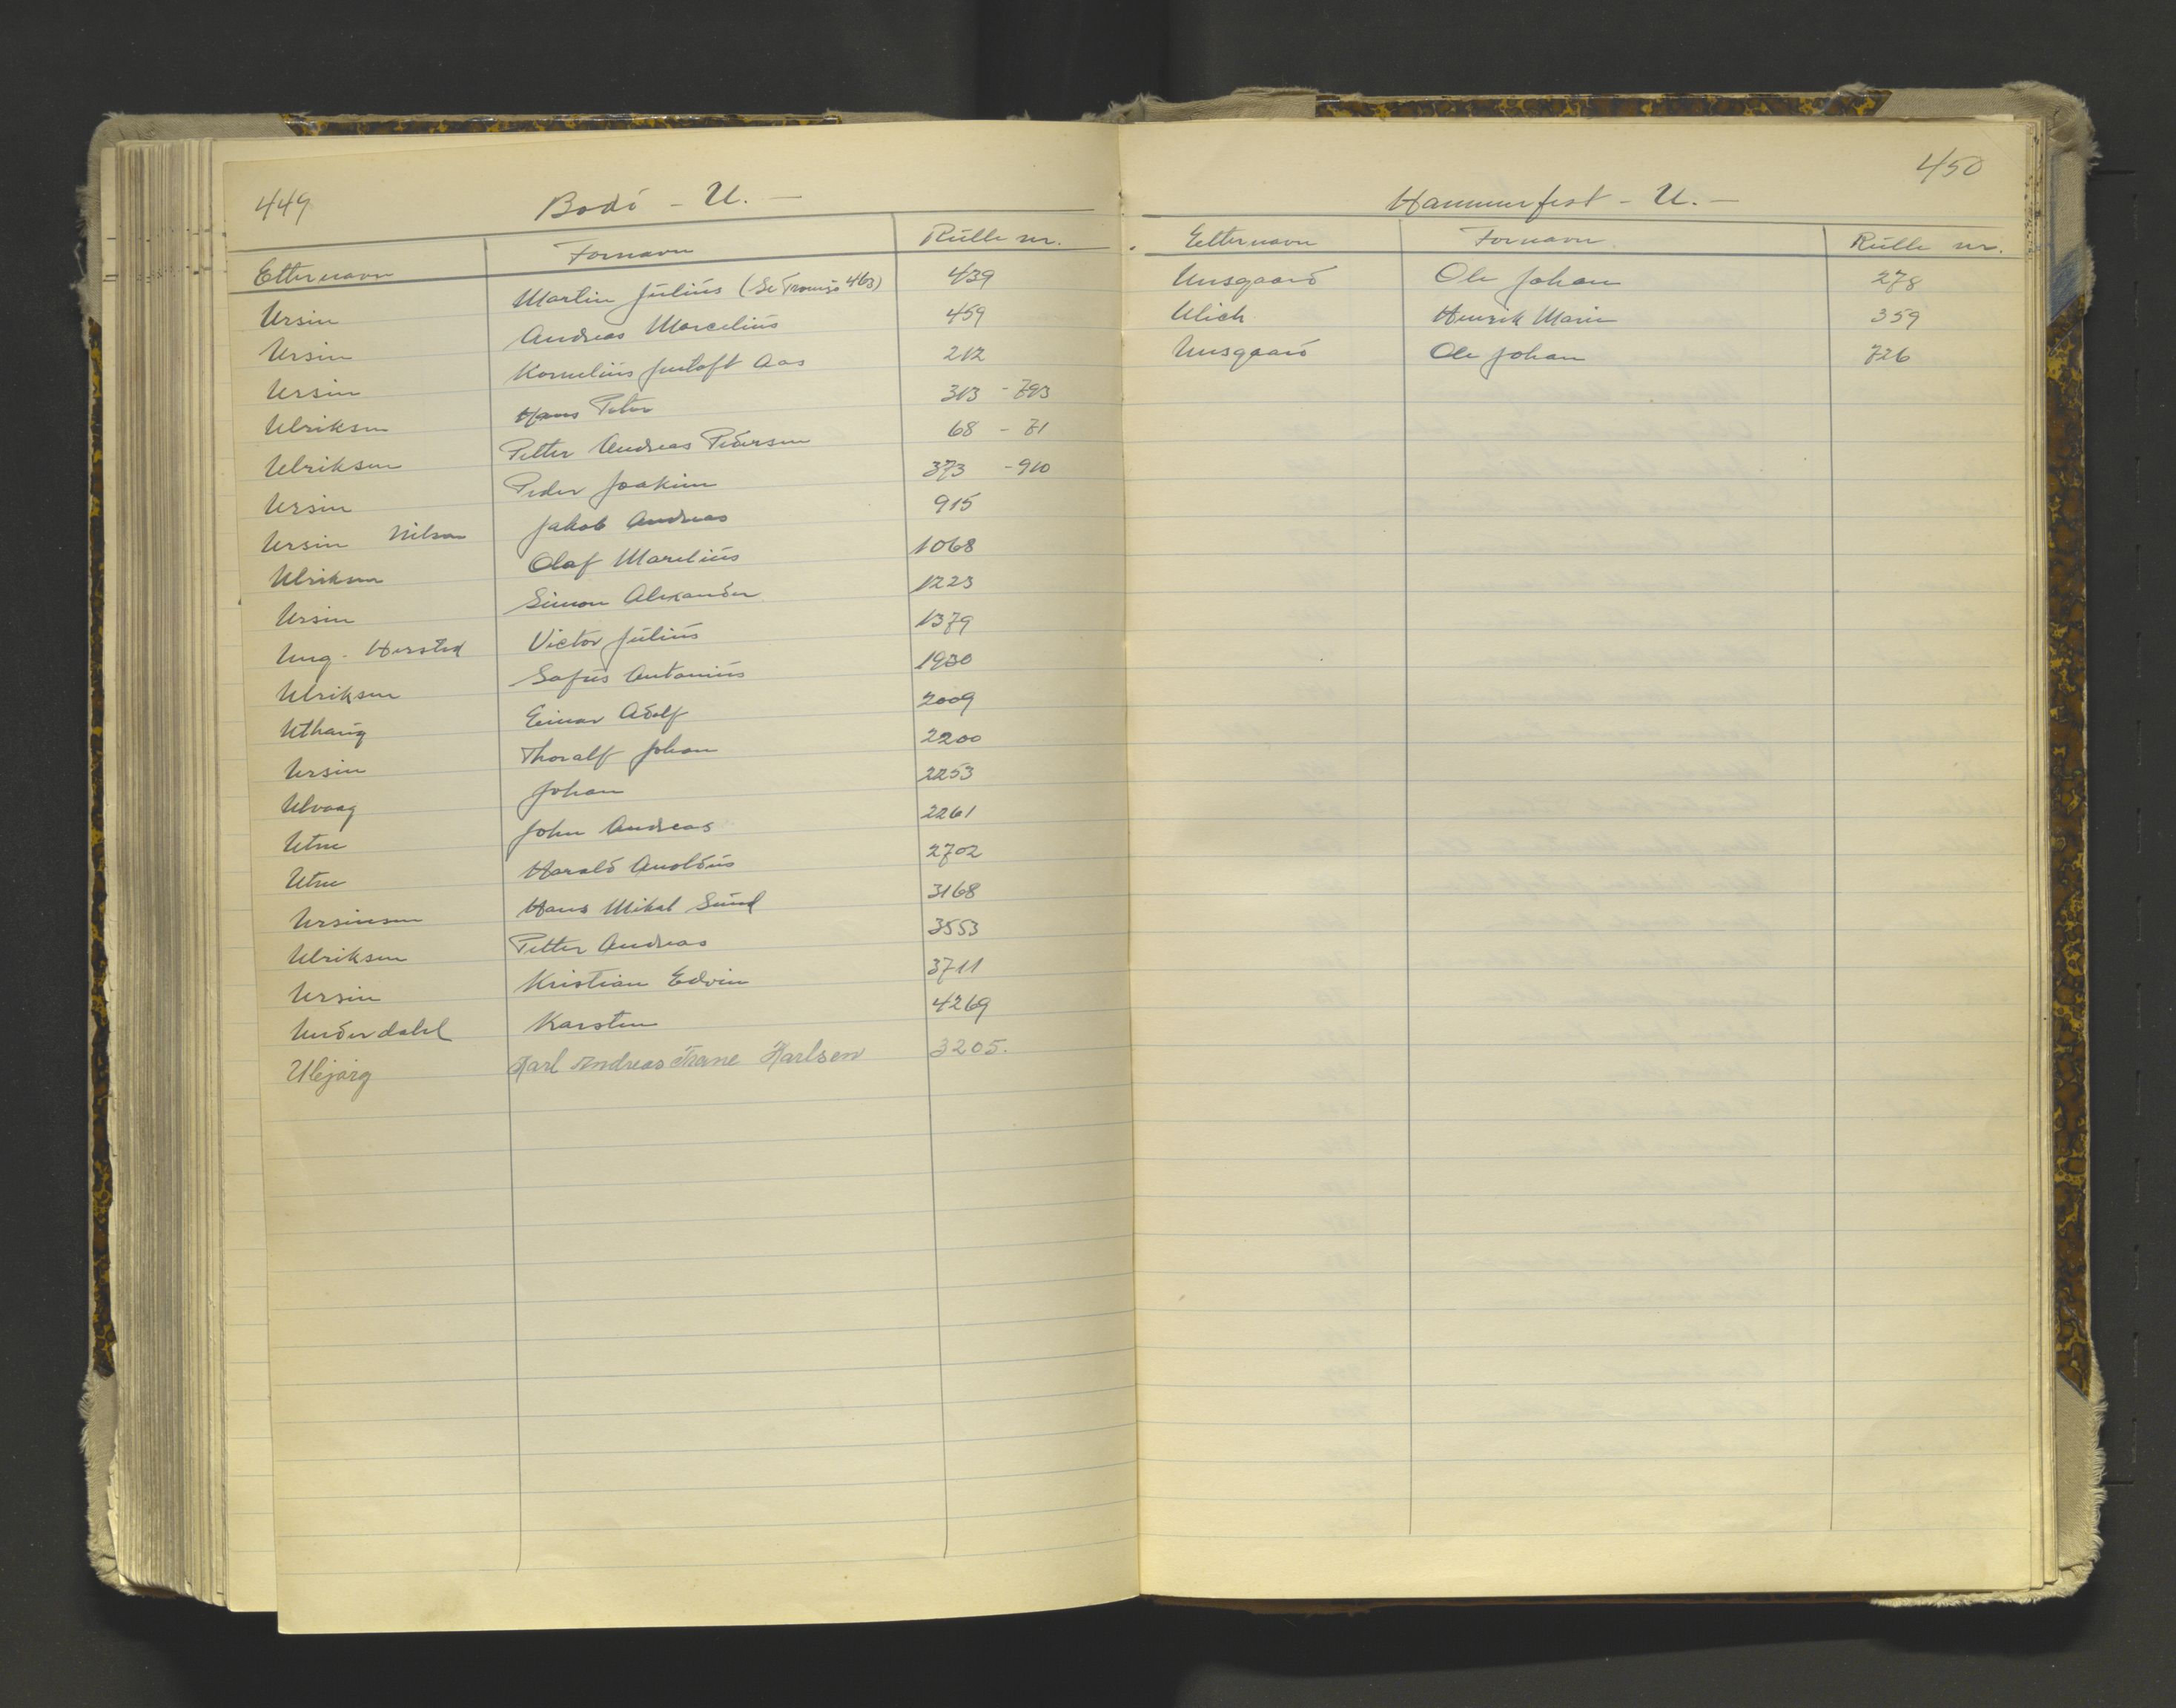 449
Bodö - U. -
Etternavn Fornavn Rülle nr.
Ursin Martin Jülius (Se Tromsö 463) 439
Ursin Andreas Marcelius 459
Ursin Kornelius Justoft Aas 212
Ulriksen Hans Peter 313 - 793
Ulriksen Petter Andreas Pedersen 68 - 71
Ursin Peder Joakim 373 - 910
Ursin Nilsen Jakob Andreas 915
Ulriksen Olaf Marelius 1068
Ursin Simon Alexander 1223
Ung-Hersted Victor Jülius 1379
Ulriksen Sofus Antonius 1930
Uthaug Einar Adolf 2009
Ursin Thoralf Johan 2200
Ulvaag Johan 2253
Utne John Andreas 2261
Utne Harald Anoldus 2702
Ursinsen Hans Mikal Sund 3168
Ulriksen Petter Andreas 3553
Ursin Kristian Edvin 3711
Underdahl Karsten 4269
Karl Andreas Karlsen 3205.
450
Hammerfest - U. -
Etternavn Fornavn Rülle nr.
Unsgaard Ole Johan 278
Ulich Henrik Marin 359
Unsgaard Ole Johan 726